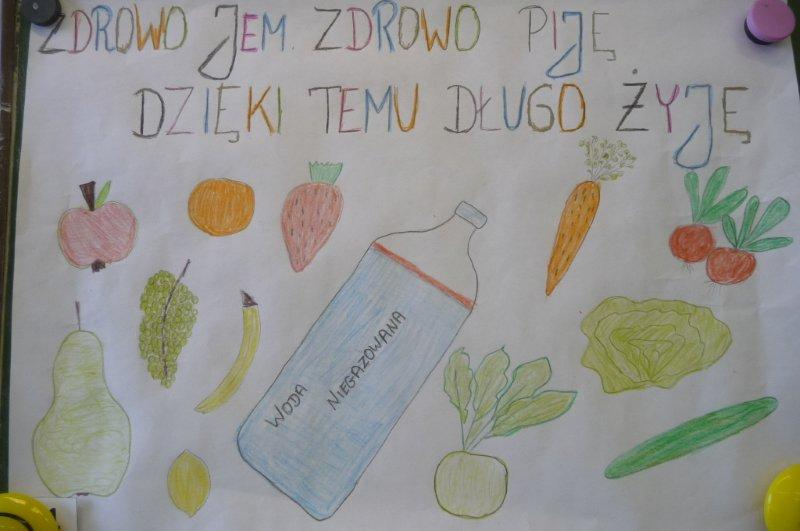 ZDROWO JEM. ZDROWO PIJĘ
DZIĘKI TEMU DŁUGO ŻYJĘ
WODA
NIEGAZOWANA